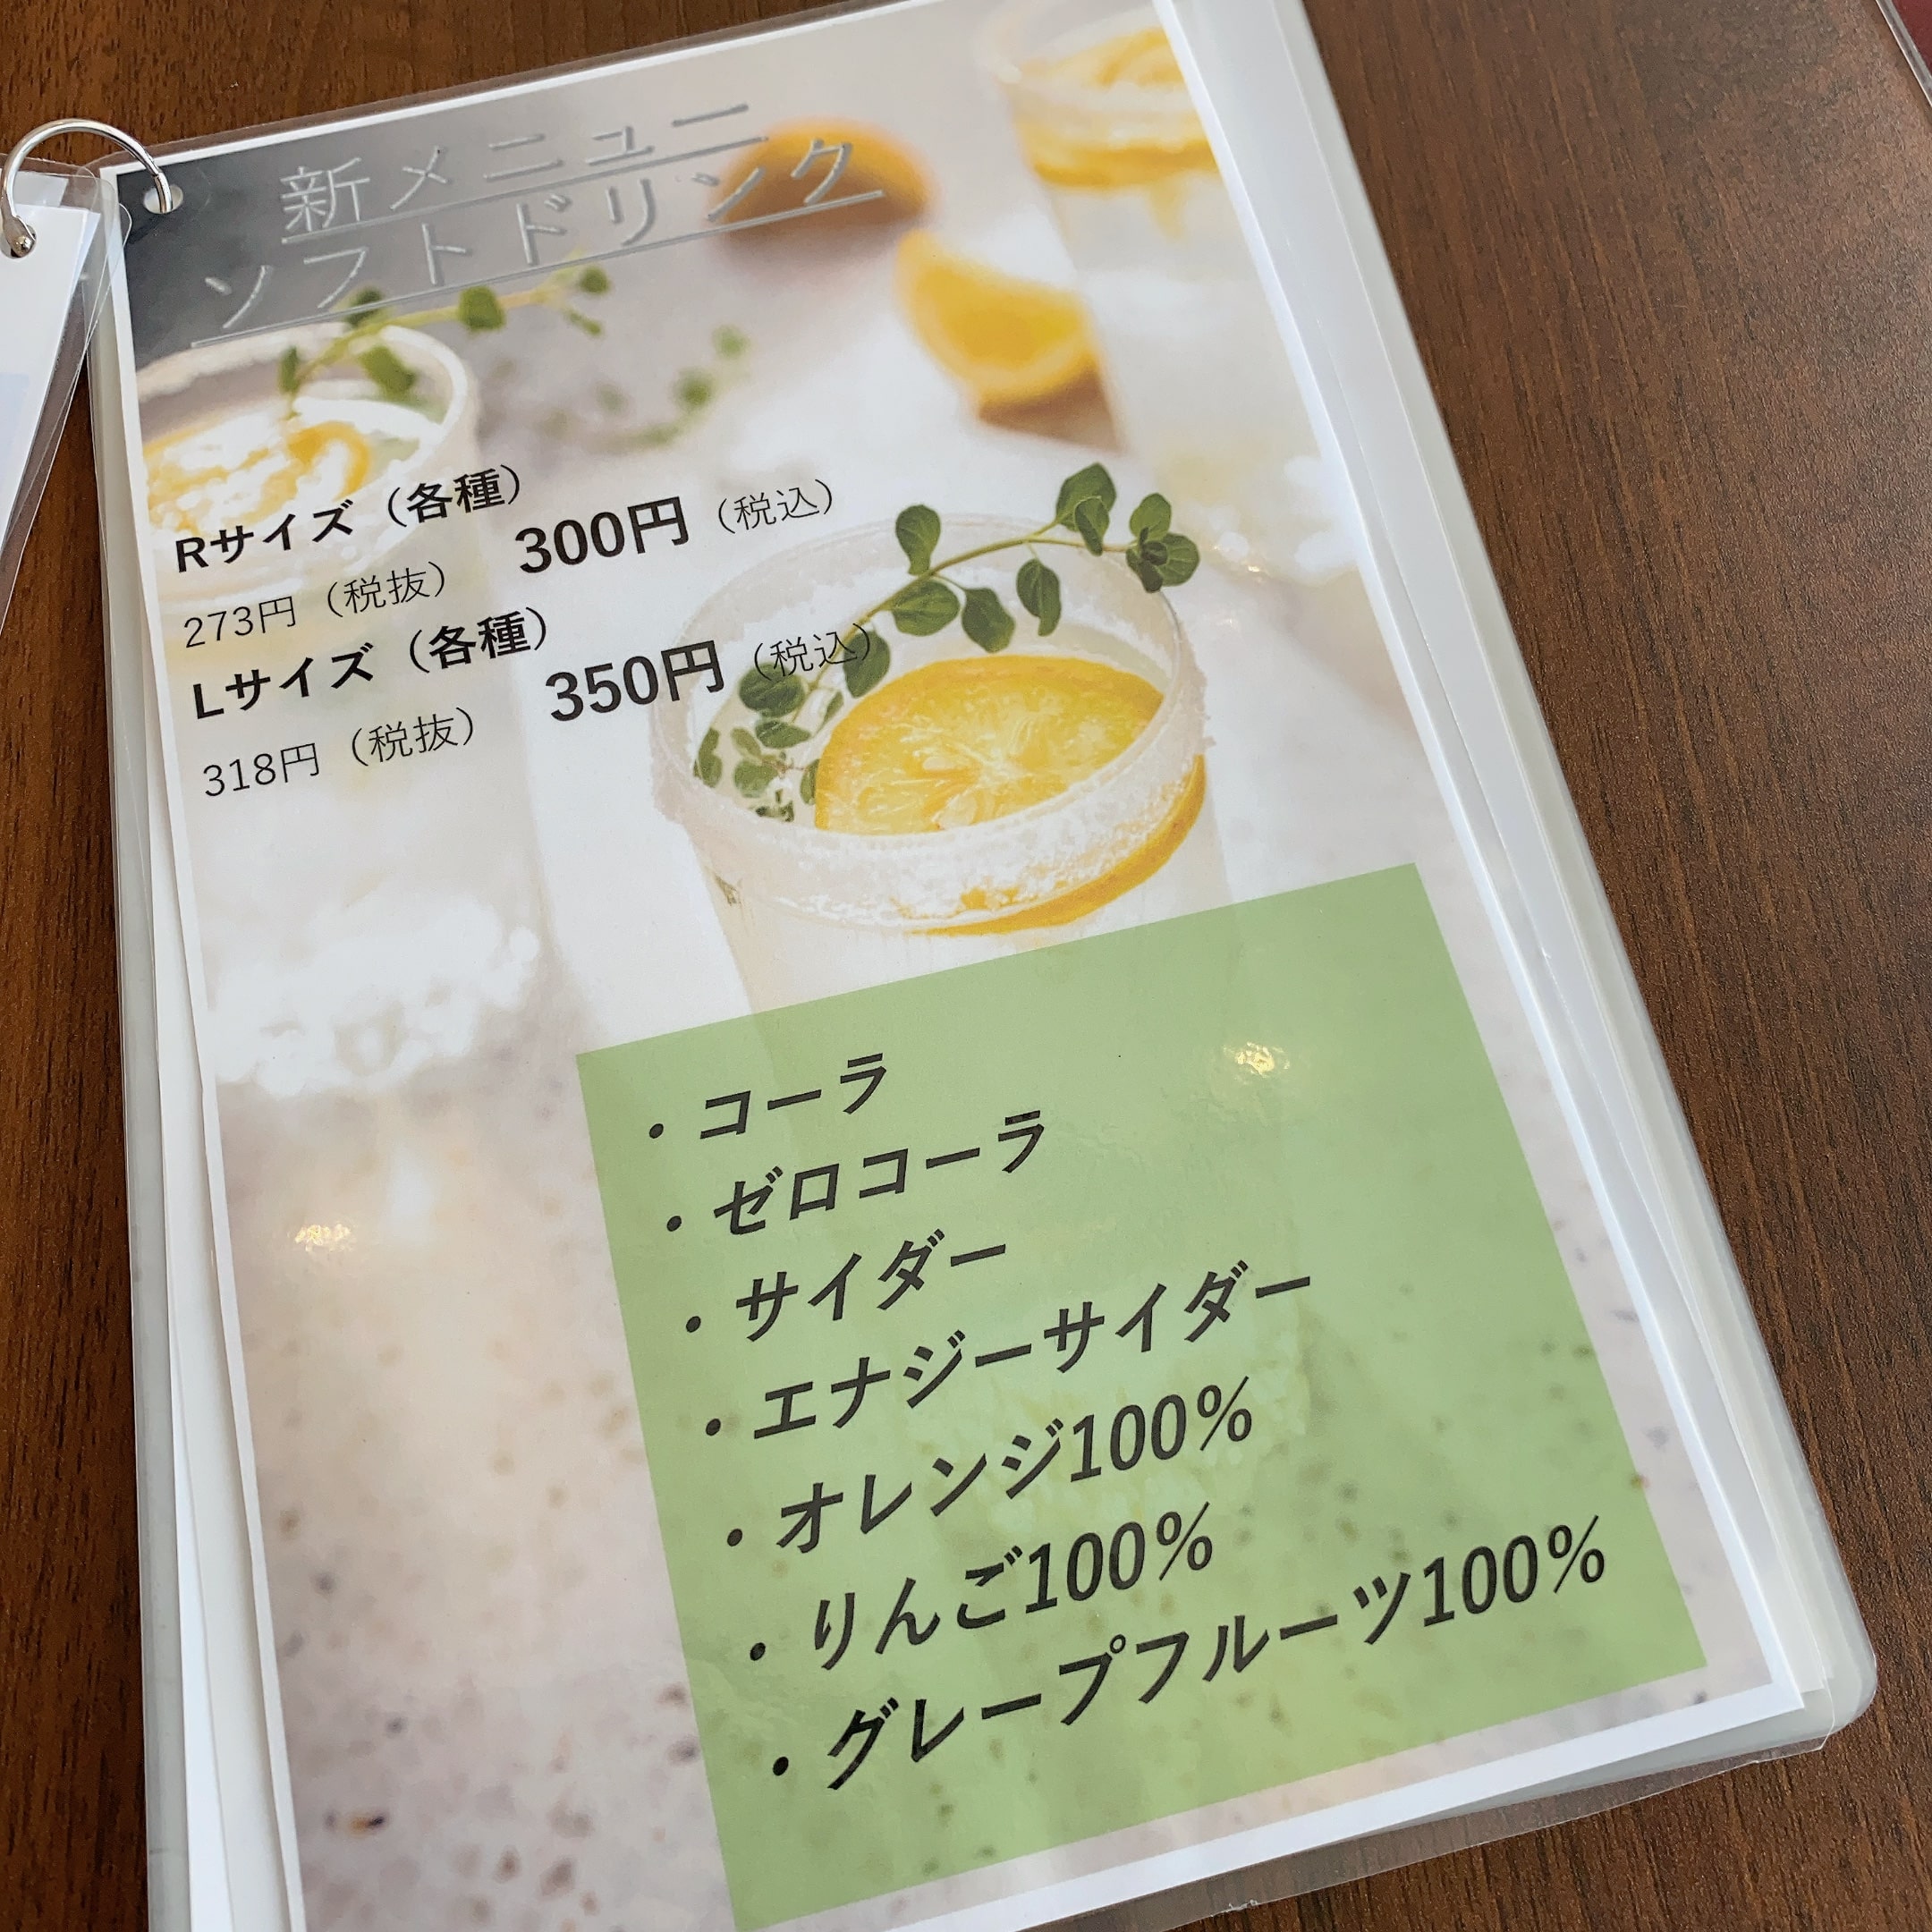 新メニュー
ソフトドリンク
Rサイズ（各種）
273円（税抜） 300円（税込）
Lサイズ（各種）
318円（税抜） 350円（税込）
・コーラ
・ゼロコーラ
・サイダー
・エナジーサイダー
・オレンジ100%
・りんご100%
・グレープフルーツ100%